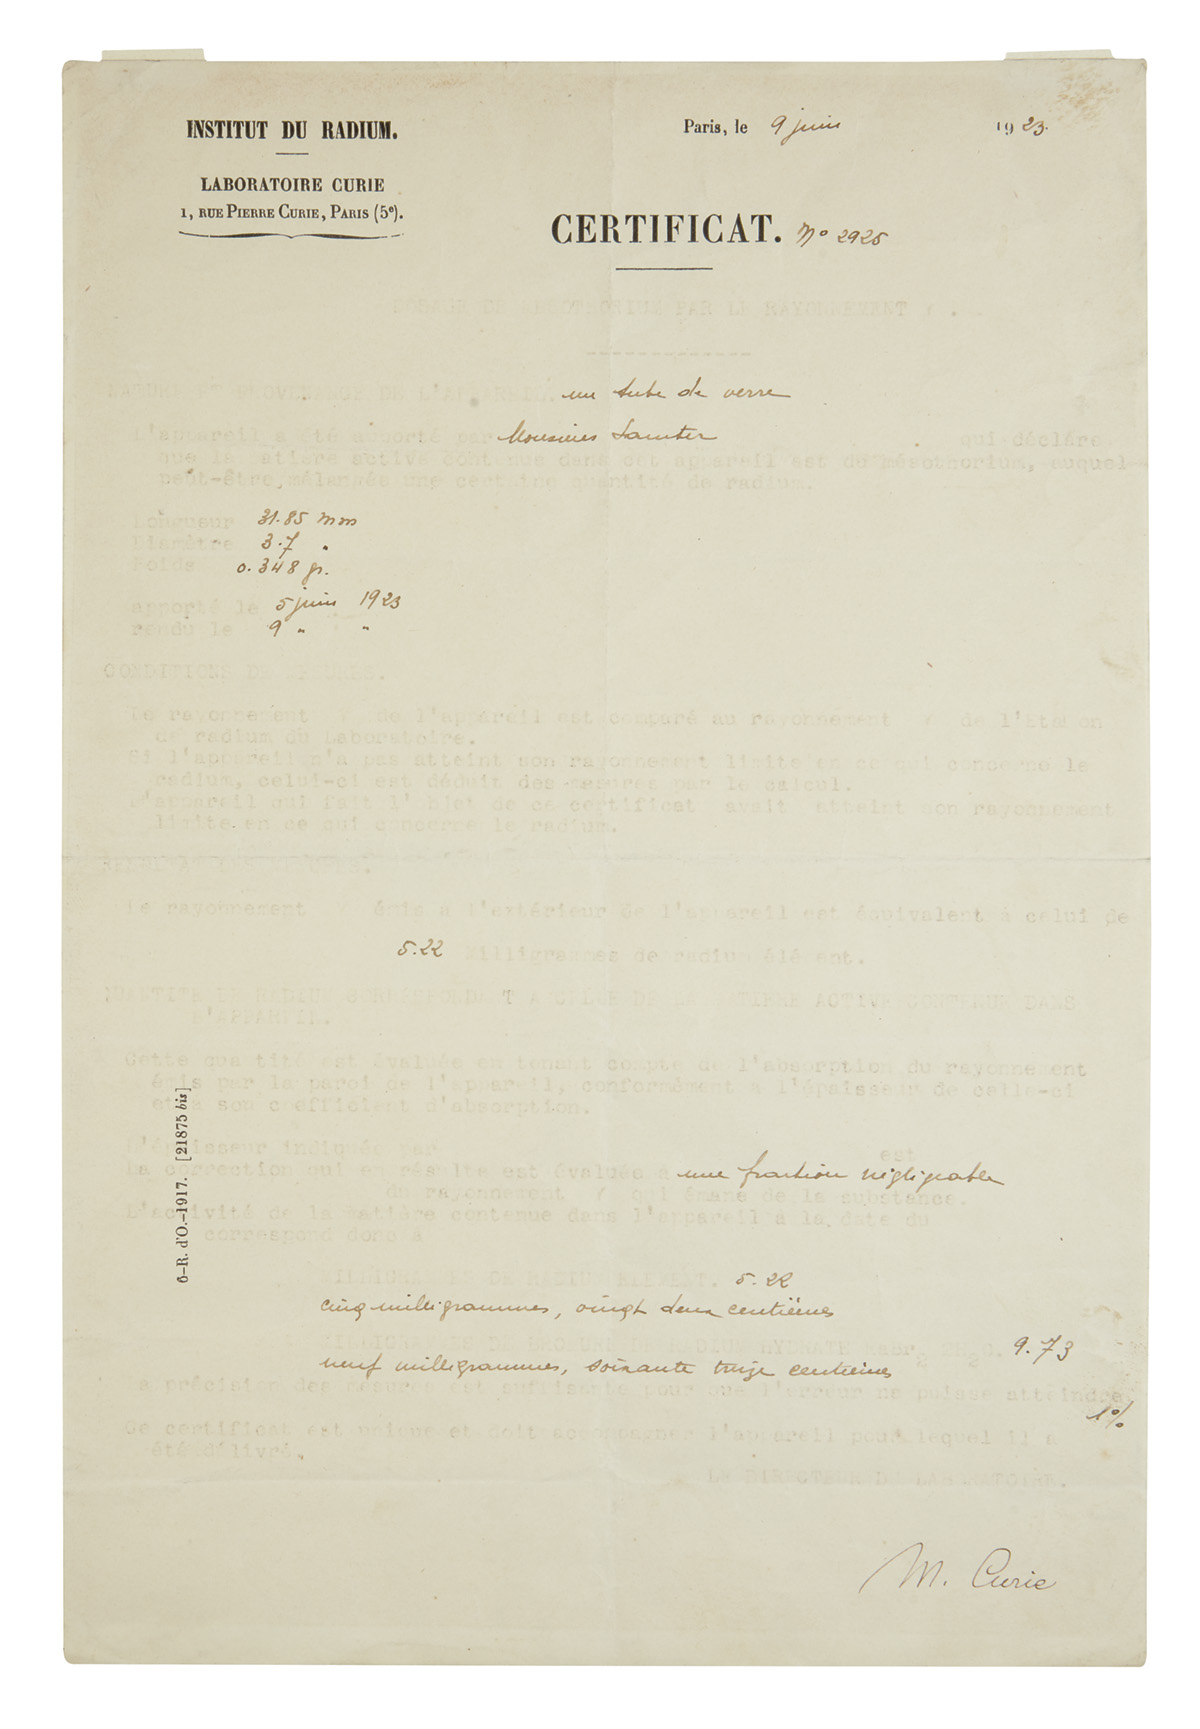 INSTITUT DU RADIUM.
LABORATOIRE CURIE
1, RUE PIERRE CURIE, PARIS (5e).
Paris, le 9 juin 1923.
CERTIFICAT. No 2925
DOSAGE DE MESOTHORIUM PAR LE RAYONNEMENT γ.
NATURE ET PROVENANCE DE L'APPAREIL. un tube de verre
L'appareil a été apporté par Monsieur qui déclare
que la matière active contenue dans cet appareil est du mésothorium, auquel
peut-être, mélangée une certaine quantité de radium.
Longueur 31.85 mm
Diamètre 3.7 "
Poids 0.348 gr.
apporté le 5 juin 1923
rendu le 9 " "
CONDITIONS DE MESURES.
Le rayonnement γ de l'appareil est comparé au rayonnement γ de l'Etalon
de radium du Laboratoire.
Si l'appareil n'a pas atteint son rayonnement limite en ce qui concerne le
radium, celui-ci est déduit des mesures par le calcul.
L'appareil qui fait l'objet de ce certificat avait atteint son rayonnement
limite en ce qui concerne le radium.
RESULTAT DES MESURES.
Le rayonnement γ émis à l'extérieur de l'appareil est équivalent à celui de
5.22 milligrammes de radium élément.
QUANTITE DE RADIUM CORRESPONDANT A CELLE DE LA MATIERE ACTIVE CONTENUE DANS
L'APPAREIL.
Cette quantité est évaluée en tenant compte de l'absorption du rayonnement
émis par la paroi de l'appareil, conformément à l'épaisseur de celle-ci
et à son coefficient d'absorption.
L'épaisseur indiquée par est
La correction qui en résulte est évaluée à une fraction négligeable
du rayonnement γ qui émane de la substance.
L'activité de la matière contenue dans l'appareil à la date du
correspond donc à
MILLIGRAMMES DE RADIUM ELEMENT. 5.22
cinq milligrammes, vingt deux centièmes
MILLIGRAMMES DE BROMURE DE RADIUM HYDRATE RaBr2 2H2O. 9.73
neuf milligrammes, soixante treize centièmes
La précision des mesures est suffisante pour que l'erreur ne puisse atteindre
1%
Ce certificat est unique et doit accompagner l'appareil pour lequel il a
été délivré.
LE DIRECTEUR DU LABORATOIRE.
M. Curie
6-R. d'O.-1917. [21875 bis]